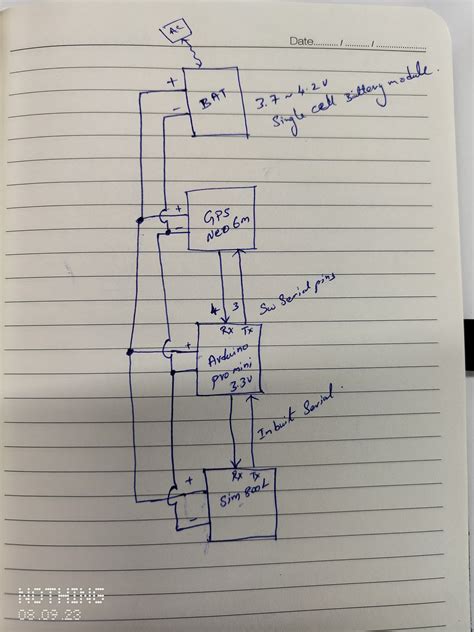 AC
Date......../......../........
+
BAT
-
3.7 ~ 4.2V
Single cell Battery module.
+
GPS
Neo 6m
-
4 3
Sw Serial pins
Rx Tx
+
Arduino
pro mini
3.3V
-
Inbuit Serial.
Rx Tx
+
Sim 800L
-
NOTHING
08.09.23